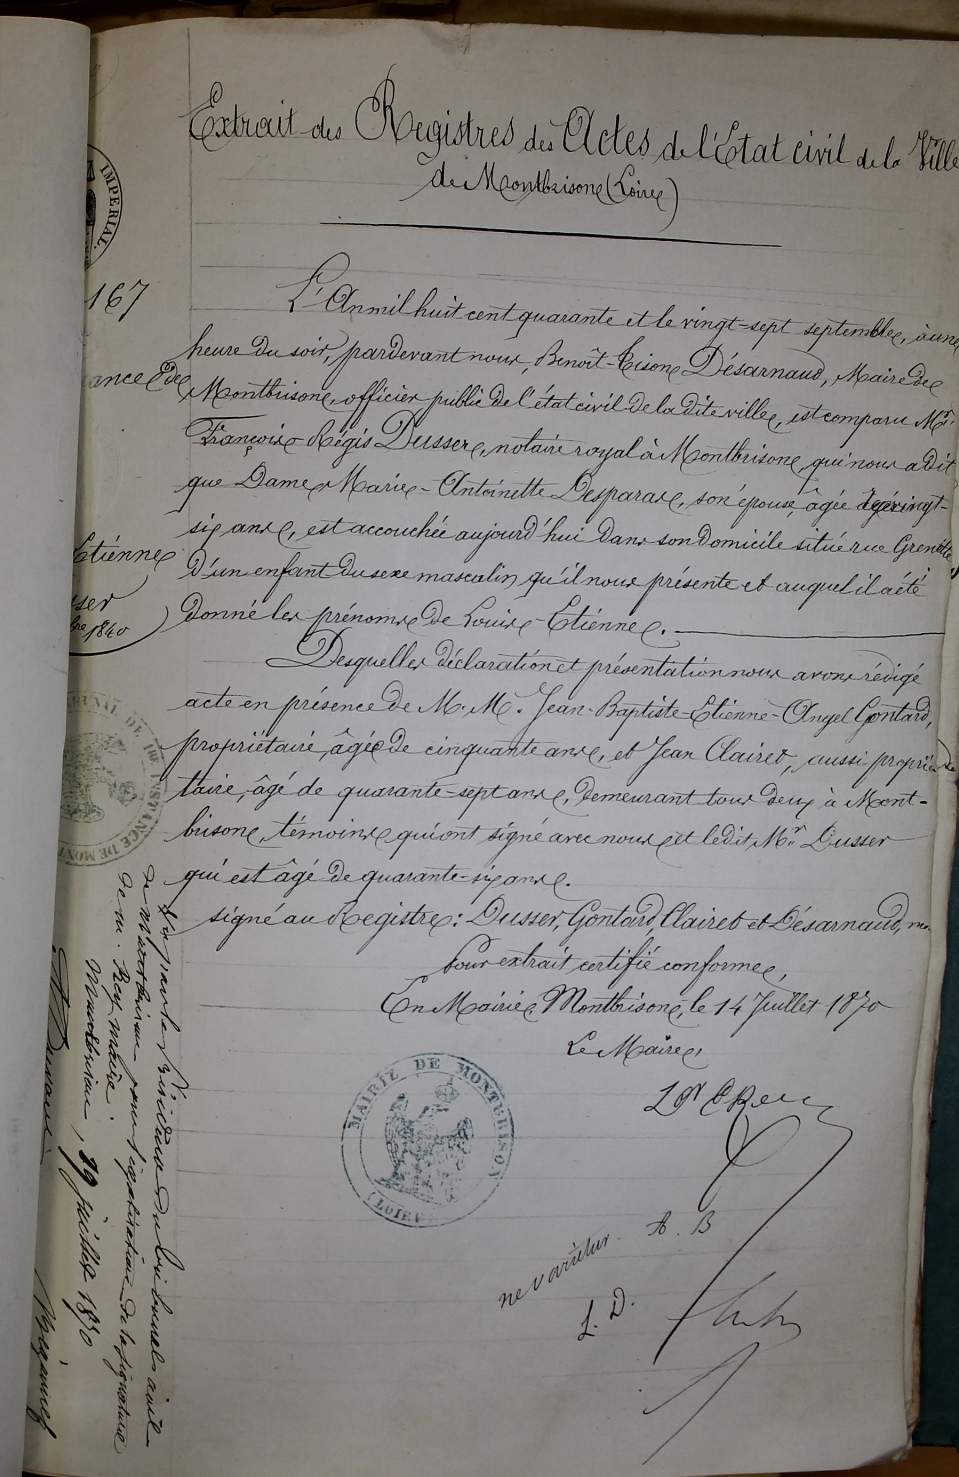 Extrait des Registres des Actes de l'Etat civil de la Ville
de Montbrison (Loire)
IMPERIAL.
167
L'An mil huit cent quarante et le vingt-sept septembre, à une
heure du soir, pardevant nous, Benoît-Tison Désarnaud, Maire de
Montbrison, officier public de l'état civil de la dite ville, est comparu Mr.
François Régis Dusser, notaire royal à Montbrison, qui nous a dit
que Dame Marie-Antoinette Desparas, son épouse, âgée de vingt-
six ans, est accouchée aujourd'hui dans son domicile situé rue Grenette
d'un enfant du sexe masculin qu'il nous présente et auquel il a été
donné les prénoms de Louis-Etienne.
Etienne
sser
bre 1840
Desquelles déclaration et présentation nous avons rédigé
acte en présence de M. M. Jean-Baptiste-Etienne-Angel Gontard,
propriétaire, âgé de cinquante ans, et Jean Clairet, aussi proprié-
taire, âgé de quarante-sept ans, demeurant tous deux à Mont-
brison, témoins qui ont signé avec nous et ledit Mr Dusser
qui est âgé de quarante-six ans.
signé au Registre: Dusser, Gontard, Clairet et Désarnaud,
Pour extrait certifié conforme,
En Mairie Montbrison, le 14 Juillet 1870
Le Maire,
MAIRIE DE MONTBRISON
(LOIRE)
ne varietur. A. B
L. D.
TRIBUNAL DE 1RE INSTANCE DE MONT
Vu par le Président du tribunal civil
de Montbrison pour légalisation de la signature
de M. Rey, maire.
Montbrison, 29 juillet 1870